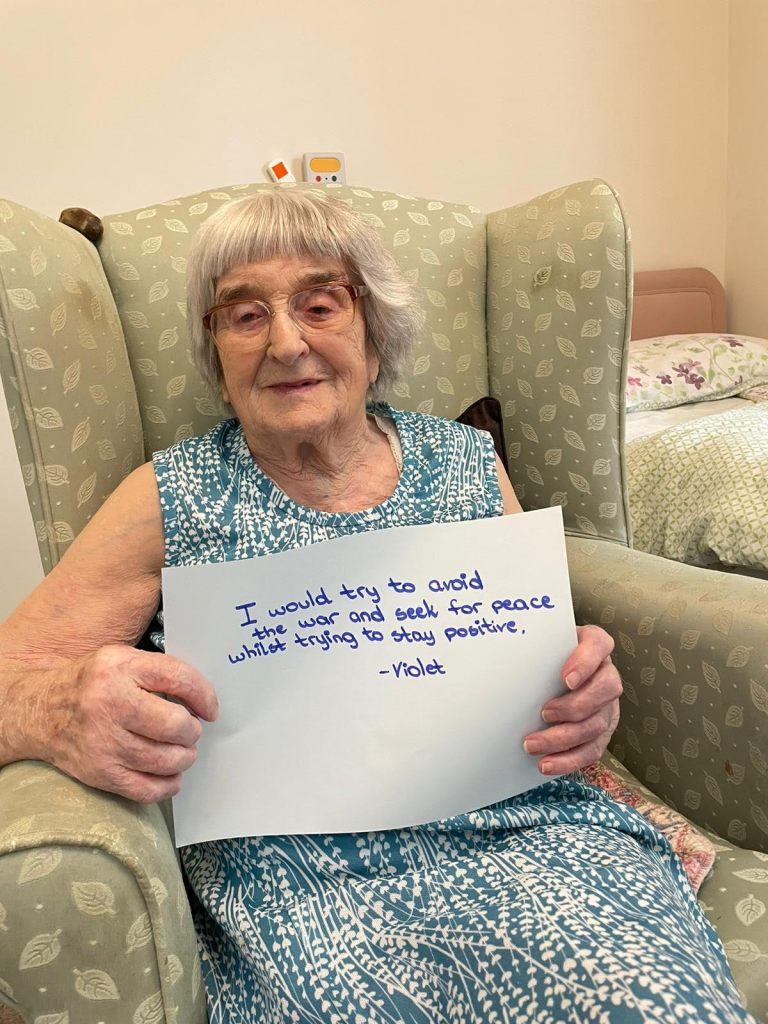 I would try to avoid
the war and seek for peace
whilst trying to stay positive.
-Violet